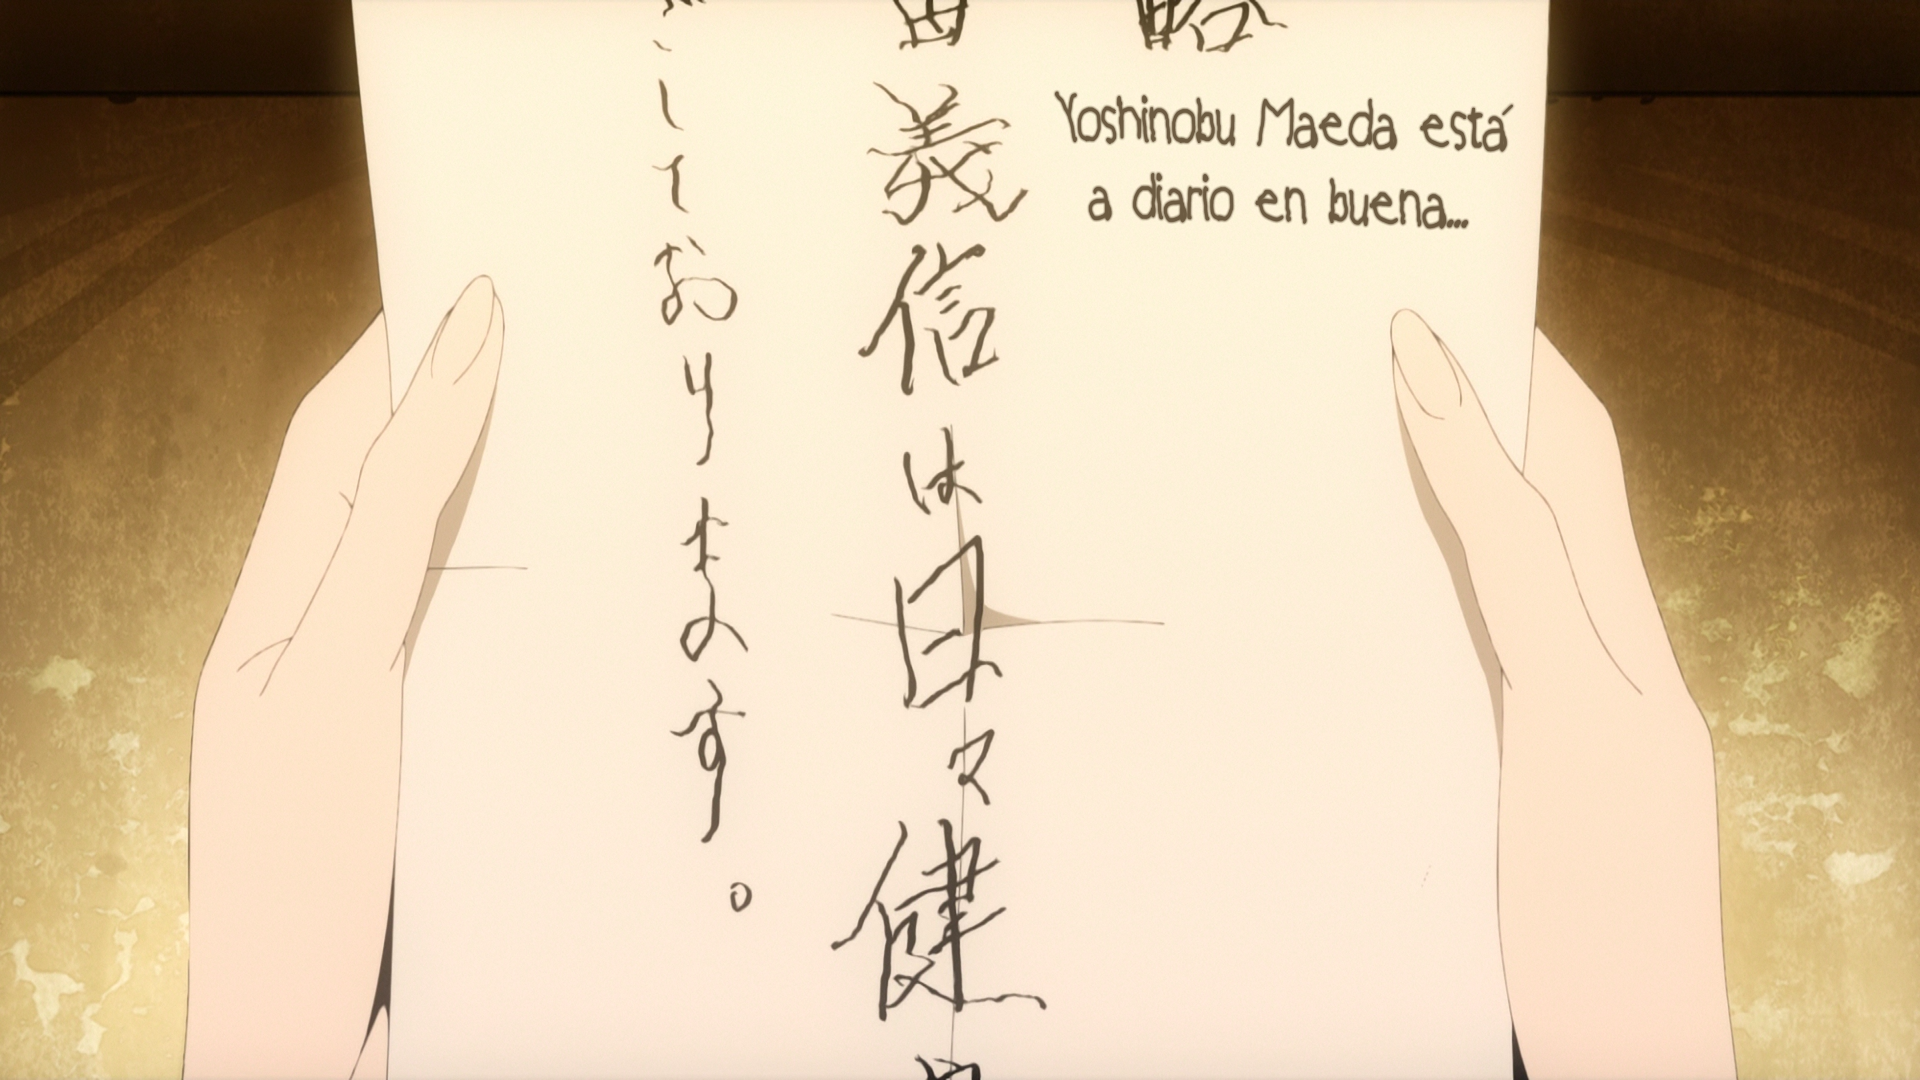 略
Yoshinobu Maeda está
a diario en buena...
田義信は日々健
ごしております。